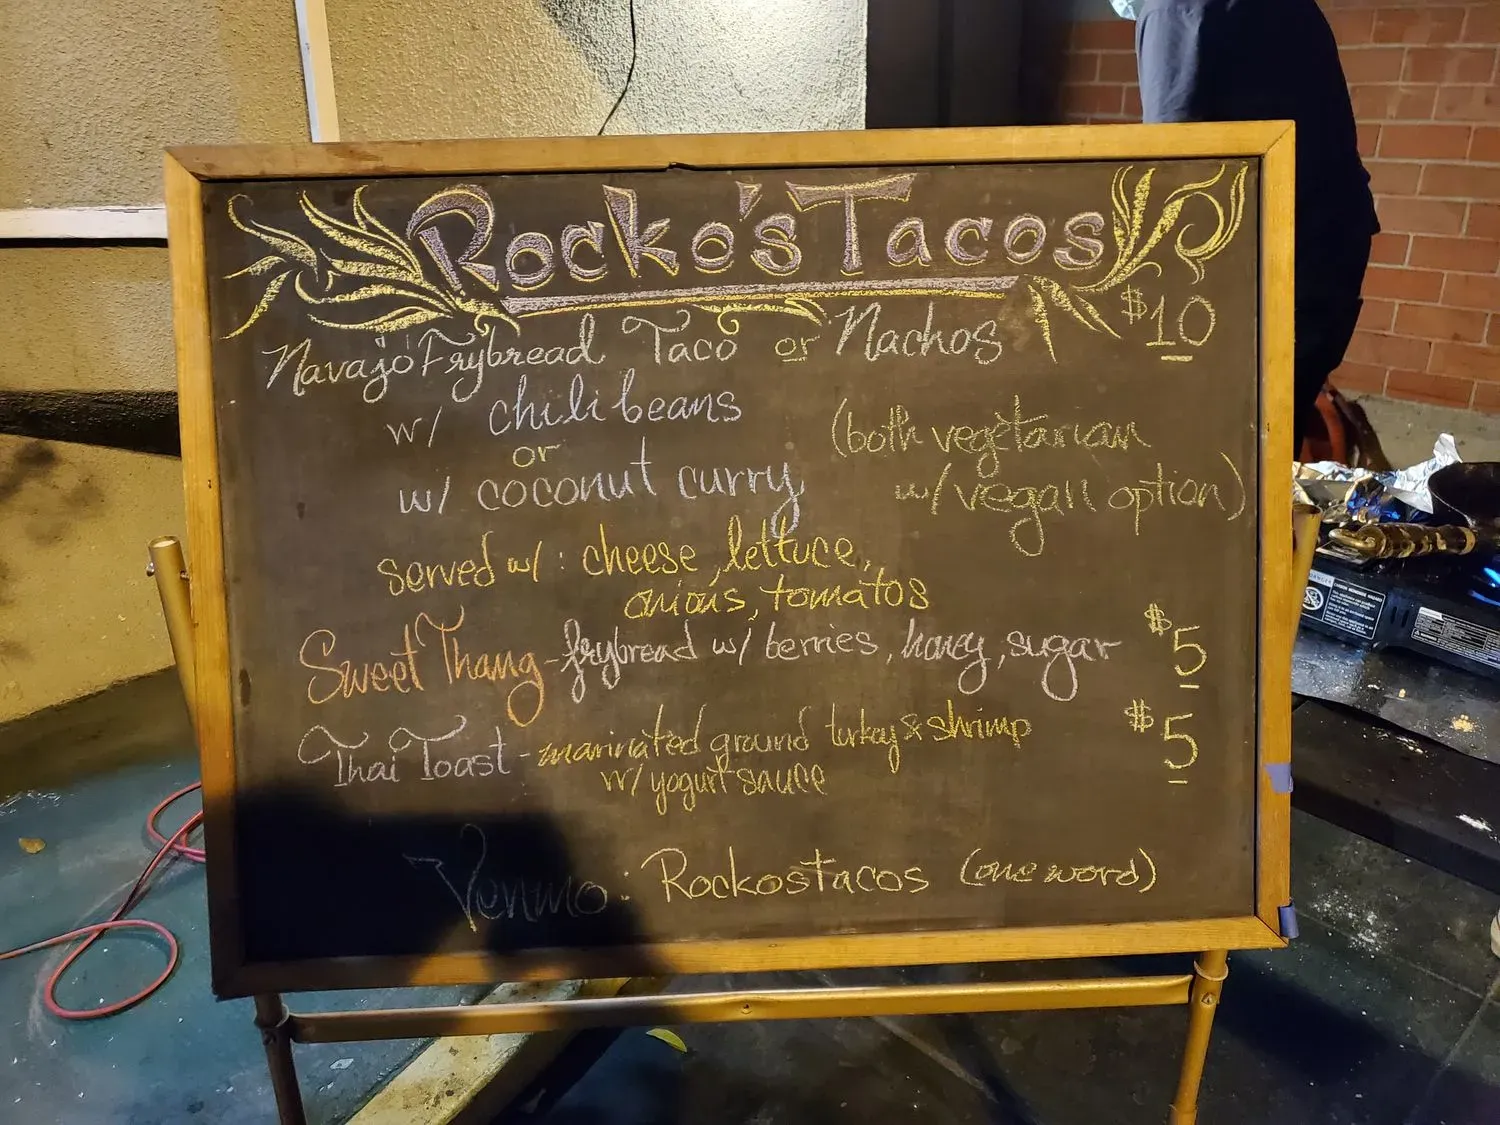 Rocko's Tacos
Navajo Frybread Taco or Nachos $10
w/ chili beans
or
w/ coconut curry
(both vegetarian
w/ vegan option)
served w/: cheese, lettuce,
onions, tomatos
Sweet Thang - frybread w/ berries, honey, sugar $5
Thai Toast - marinated ground turkey & shrimp $5
w/ yogurt sauce
Venmo: Rockostacos (one word)
DANGER